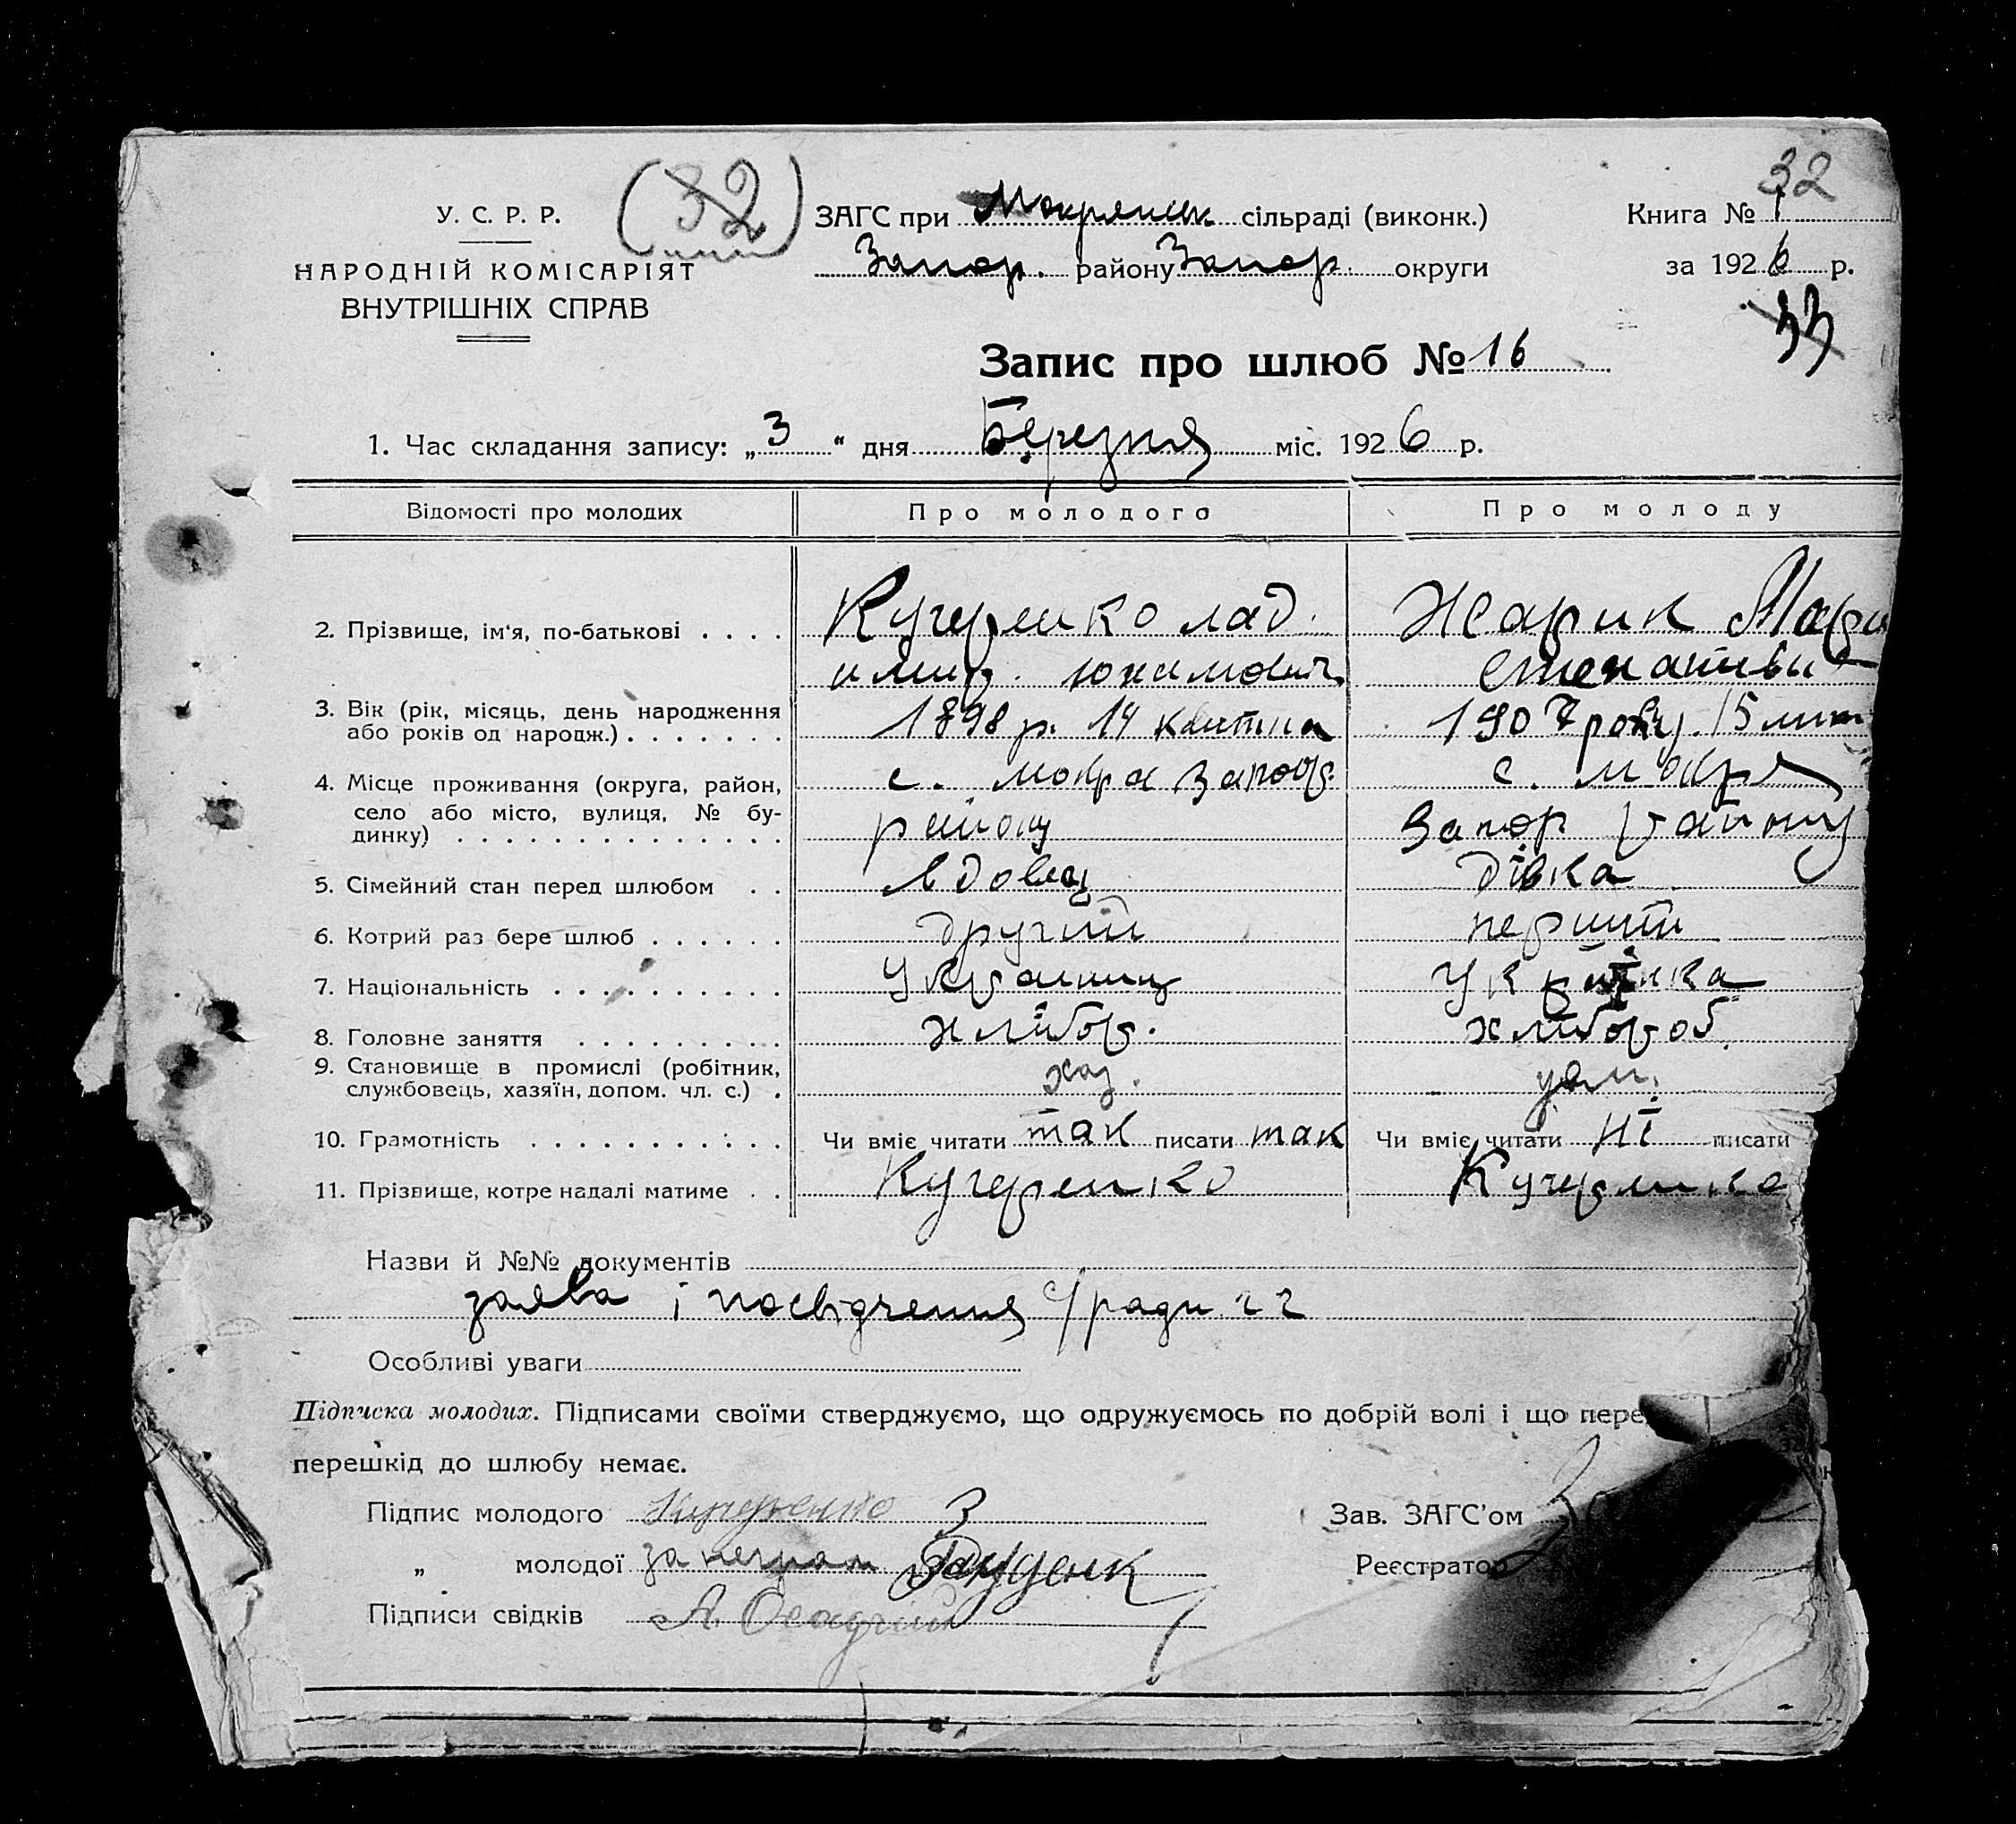 32
У. С. Р. Р. (32) ЗАГС при Мокрянськ сільраді (виконк.) Книга № 1
НАРОДНІЙ КОМІСАРІЯТ Запор. району Запор. округи за 1926 р.
ВНУТРІШНІХ СПРАВ 33
Запис про шлюб № 16
1. Час складання запису: „3“ дня Березня міс. 1926 р.
Відомості про молодих Про молодого Про молоду
2. Прізвище, ім'я, по-батькові . . . . Кучеренко лад. Жарик Мари
имир. юхимович
3. Вік (рік, місяць, день народження 1898 р. 14 квитня 1907 року. 15
або років од народж.) . . . . . . .
4. Місце проживання (округа, район, с. мокра Запор. с. мокра
село або місто, вулиця, № бу- району Запор району
динку) . . . . . . . . . . . . . .
5. Сімейний стан перед шлюбом . . вдовец дівка
6. Котрий раз бере шлюб . . . . . . другий перший
7. Національність . . . . . . . . . . Украинец
8. Головне заняття . . . . . . . . . хлібор. хлібороб.
9. Становище в промислі (робітник, хаз.
службовець, хазяїн, допом. чл. с.) .
10. Грамотність . . . . . . . . . . . Чи вміє читати так писати так Чи вміє читати ні писати
11. Прізвище, котре надалі матиме . . Кучеренко Кучеренко
Назви й №№ документів
заява і посвідчення с/ради
Особливі уваги
Підписка молодих. Підписами своїми стверджуємо, що одружуємось по добрій волі і що
перешкід до шлюбу немає.
Підпис молодого Кучеренко З Зав. ЗАГС'ом
„ молодої за неграм Реєстратор
Підписи свідків А.